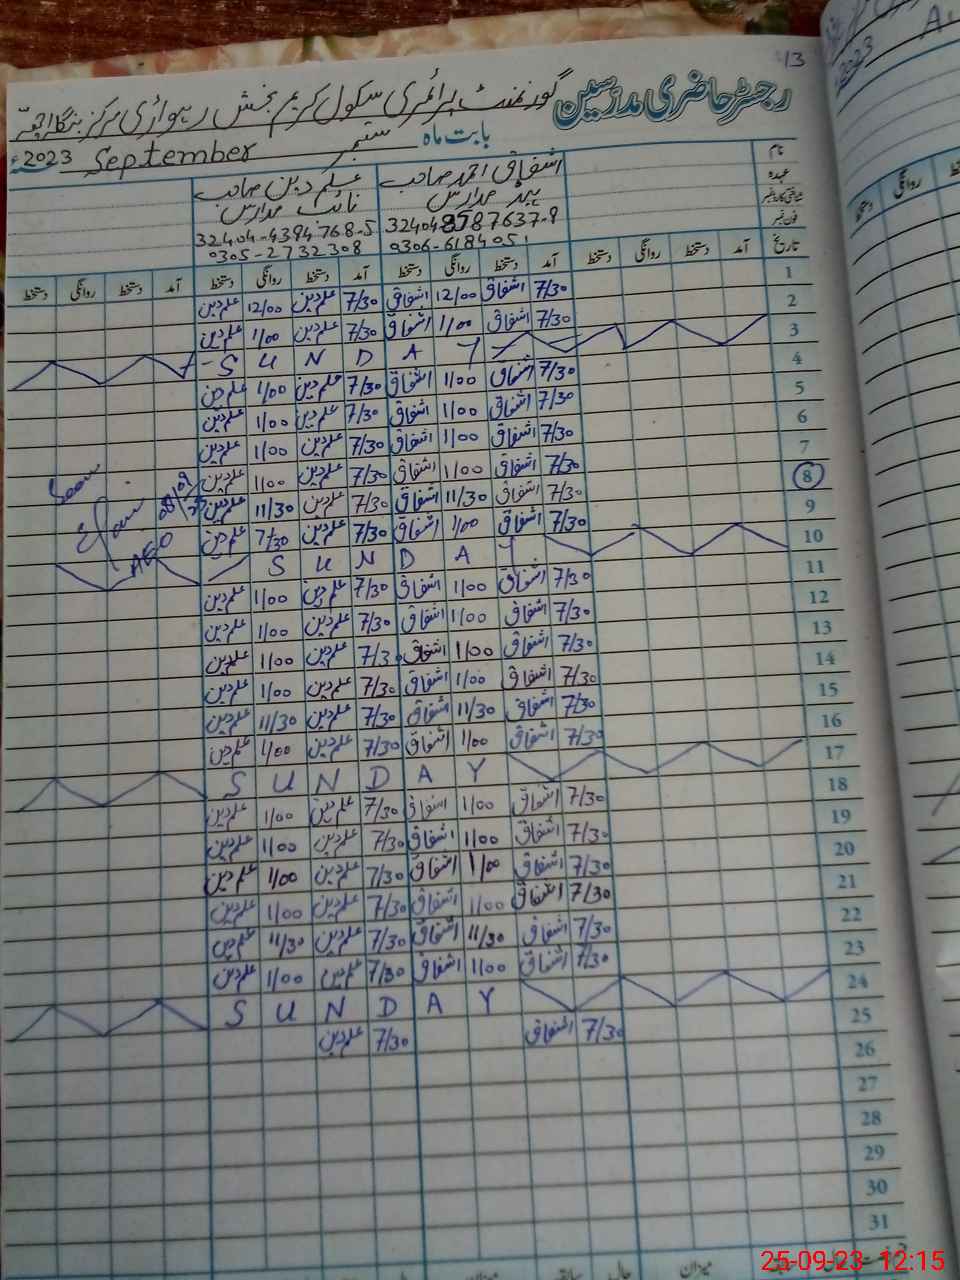 13
رجسٹر حاضری مدرسین گورنمنٹ پرائمری سکول کریم بخش رہواڑی مرکز بنگلہ اچھہ
بابت ماہ ستمبر September 2023ء
نام اشفاق احمد صاحب علم دین صاحب
عہدہ ہیڈ مدرس نائب مدرس
شناختی کارڈ نمبر 32404-8587637-9 32404-4394768-5
فون نمبر 0306-6184051 0305-2732308
تاریخ آمد دستخط روانگی دستخط آمد دستخط روانگی دستخط آمد دستخط روانگی دستخط آمد دستخط روانگی دستخط
1 7/30 اشفاق 12/00 اشفاق 7/30 علم دین 12/00 علم دین
2 7/30 اشفاق 1/00 اشفاق 7/30 علم دین 1/00 علم دین
3 S U N D A Y
4 7/30 اشفاق 1/00 اشفاق 7/30 علم دین 1/00 علم دین
5 7/30 اشفاق 1/00 اشفاق 7/30 علم دین 1/00 علم دین
6 7/30 اشفاق 1/00 اشفاق 7/30 علم دین 1/00 علم دین
7 7/30 اشفاق 1/00 اشفاق 7/30 علم دین 1/00 علم دین
8 7/30 اشفاق 11/30 اشفاق 7/30 علم دین 11/30 علم دین Seen 08/09
9 7/30 اشفاق 1/00 اشفاق 7/30 علم دین 7/30 علم دین AEO
10 S U N D A Y
11 7/30 اشفاق 1/00 اشفاق 7/30 علم دین 1/00 علم دین
12 7/30 اشفاق 1/00 اشفاق 7/30 علم دین 1/00 علم دین
13 7/30 اشفاق 1/00 اشفاق 7/30 علم دین 1/00 علم دین
14 7/30 اشفاق 1/00 اشفاق 7/30 علم دین 1/00 علم دین
15 7/30 اشفاق 11/30 اشفاق 7/30 علم دین 11/30 علم دین
16 7/30 اشفاق 1/00 اشفاق 7/30 علم دین 1/00 علم دین
17 S U N D A Y
18 7/30 اشفاق 1/00 اشفاق 7/30 علم دین 1/00 علم دین
19 7/30 اشفاق 1/00 اشفاق 7/30 علم دین 1/00 علم دین
20 7/30 اشفاق 1/00 اشفاق 7/30 علم دین 1/00 علم دین
21 7/30 اشفاق 1/00 اشفاق 7/30 علم دین 1/00 علم دین
22 7/30 اشفاق 11/30 اشفاق 7/30 علم دین 11/30 علم دین
23 7/30 اشفاق 1/00 اشفاق 7/30 علم دین 1/00 علم دین
24 S U N D A Y
25 7/30 اشفاق 7/30 علم دین
26
27
28
29
30
31
میزان حال سابقہ میزان
25-09-23 12:15